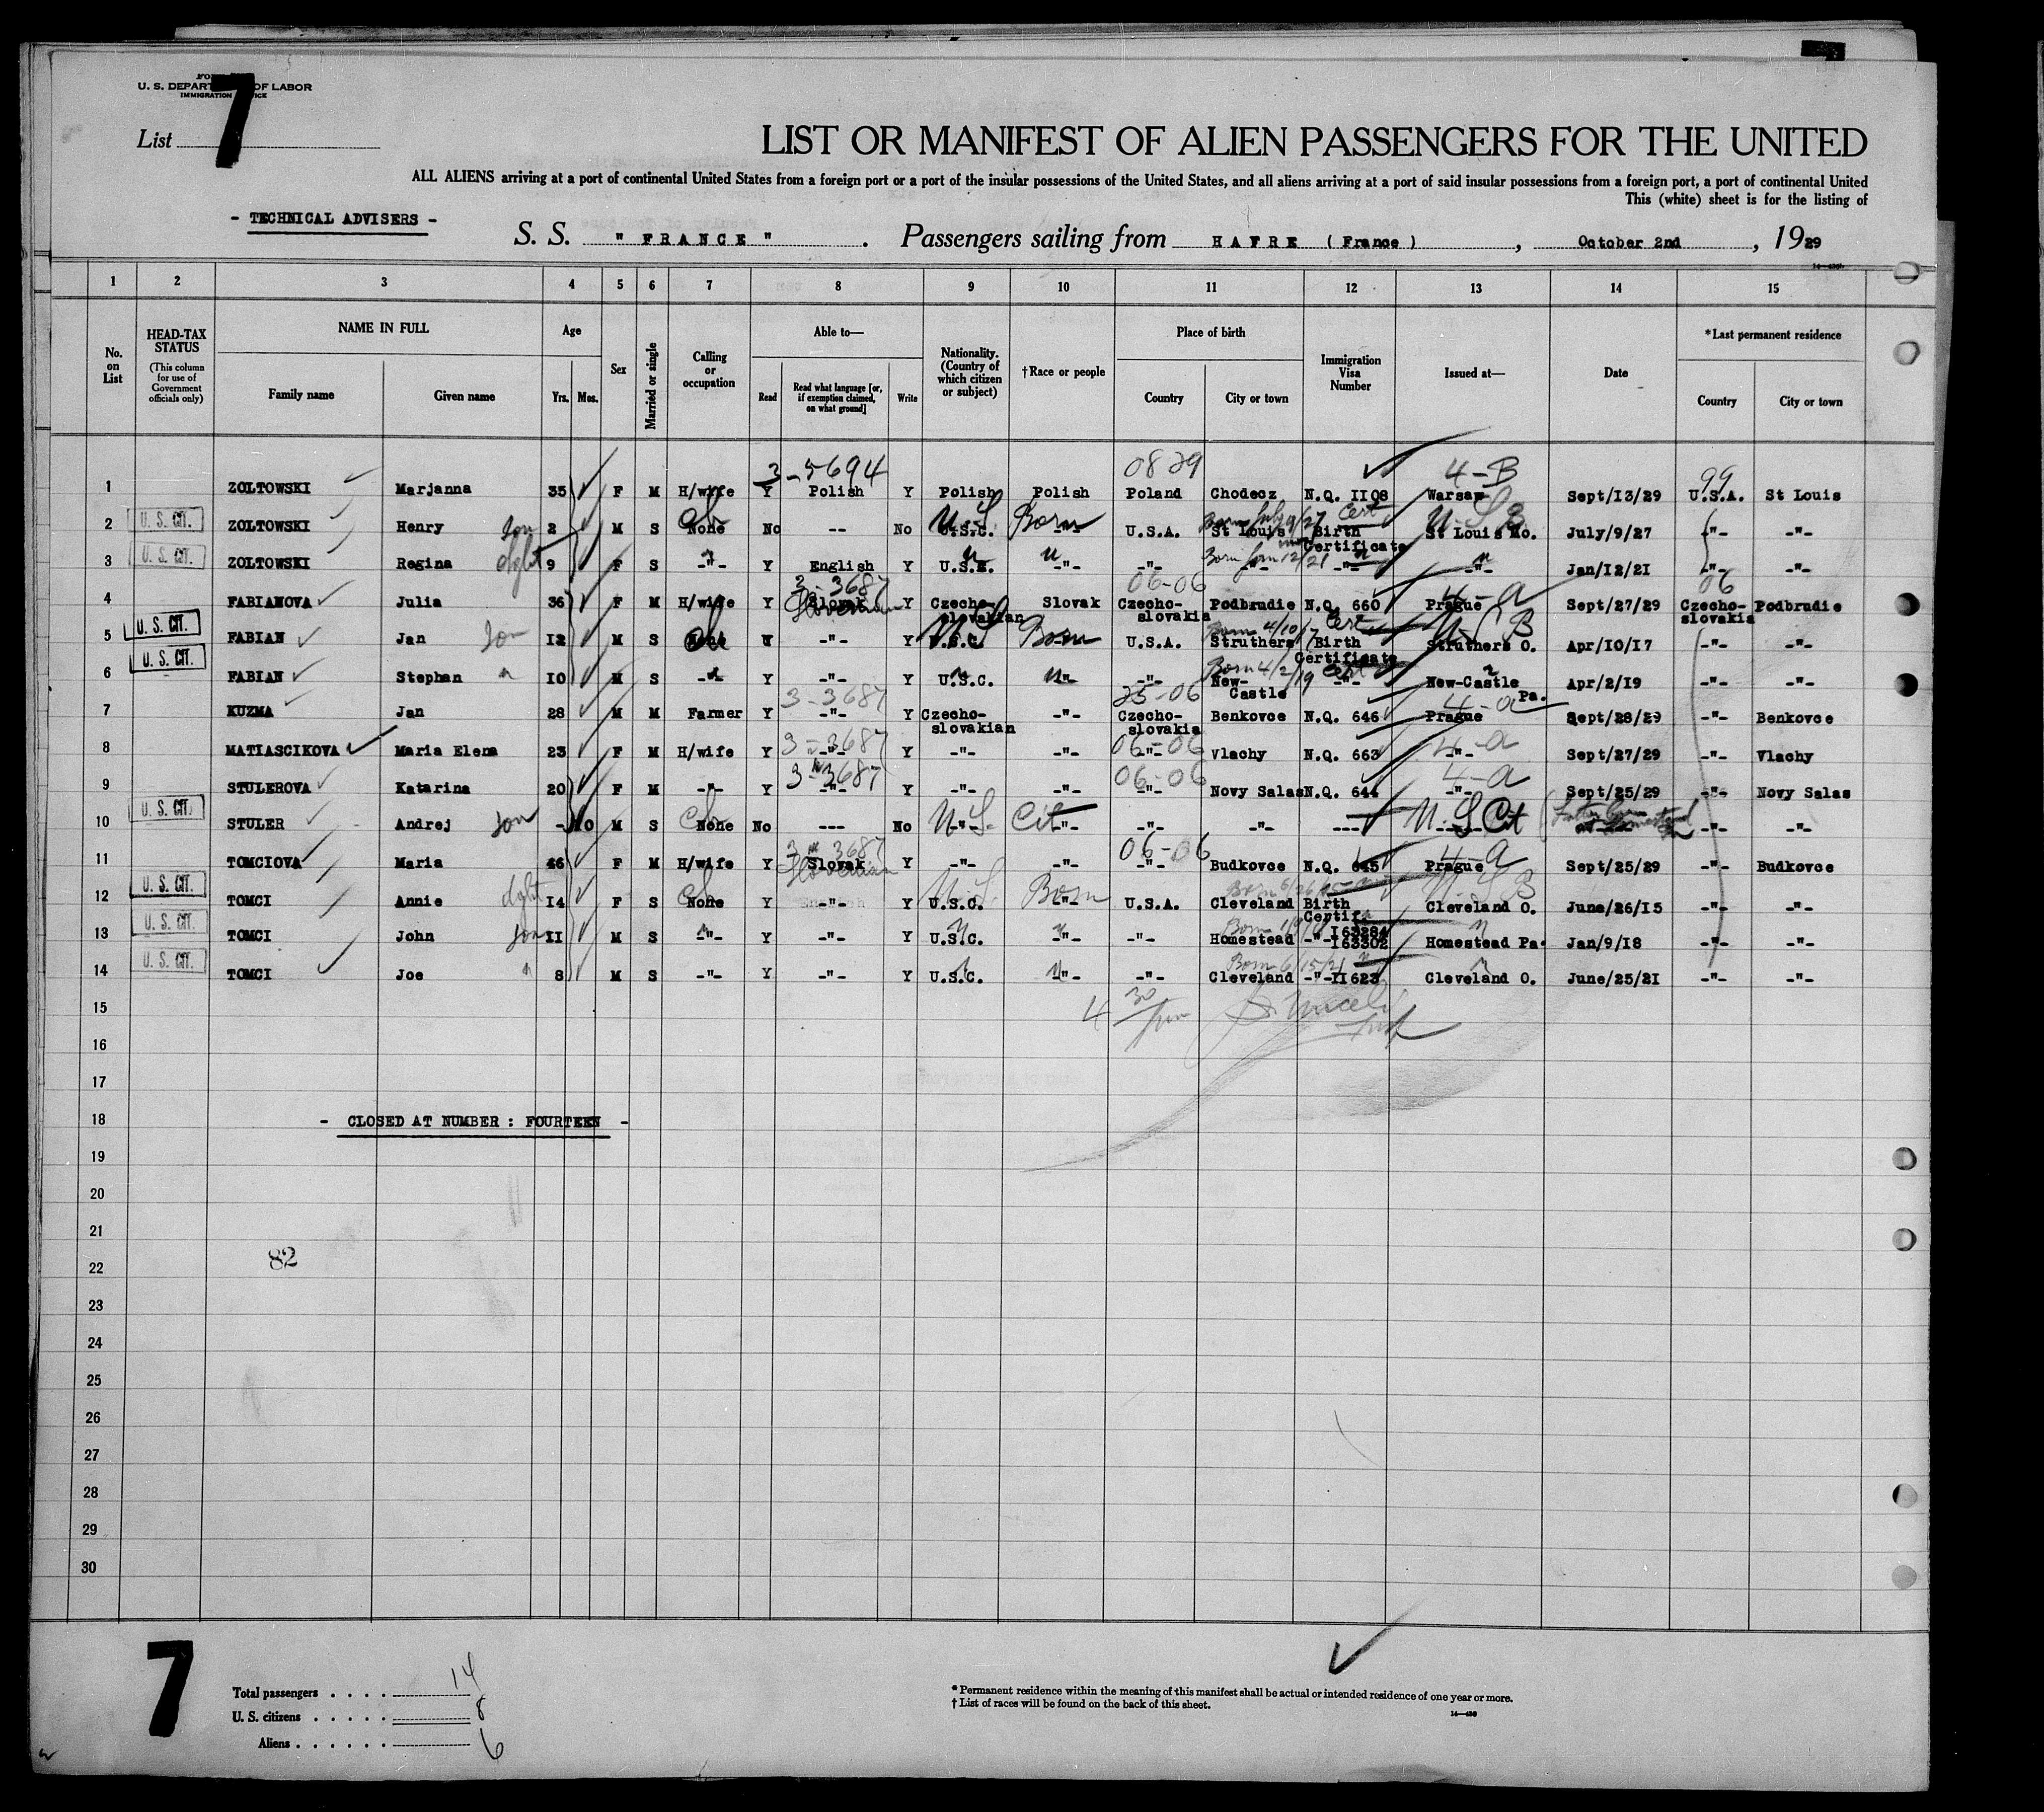 U. S. DEPARTMENT OF LABOR
IMMIGRATION SERVICE
List 7
LIST OR MANIFEST OF ALIEN PASSENGERS FOR THE UNITED
ALL ALIENS arriving at a port of continental United States from a foreign port or a port of the insular possessions of the United States, and all aliens arriving at a port of said insular possessions from a foreign port, a port of continental United
This (white) sheet is for the listing of
- TECHNICAL ADVISERS -
S. S. " FRANCE " . Passengers sailing from HAVRE (France) , October 2nd , 1929
1 2 3 4 5 6 7 8 9 10 11 12 13 14 15
No. on List
HEAD-TAX STATUS (This column for use of Government officials only)
NAME IN FULL Family name Given name
Age Yrs. Mos.
Sex
Married or single
Calling or occupation
Able to— Read Read what language [or, if exemption claimed, on what ground] Write
Nationality. (Country of which citizen or subject)
†Race or people
Place of birth Country City or town
Immigration Visa Number
Issued at—
Date
*Last permanent residence Country City or town
3-5694 0829 4-B 99
1 ZOLTOWSKI Marjanna 35 F M H/wife Y Polish Y Polish Polish Poland Chodecz N.Q. 1108 Warsaw Sept/13/29 U.S.A. St Louis
U. S. CIT. U.S. Born Born July 9/27 Cert U-S B
2 ZOLTOWSKI Henry Son 2 M S None No -- No U.S.C. -"- U.S.A. St Louis Birth Certificate St Louis Mo. July/9/27 -"- -"-
U. S. CIT. Born Jan 12/21
3 ZOLTOWSKI Regina dght 9 F S -"- Y English Y U.S.C. -"- -"- -"- -"- -"- Jan/12/21 -"- -"-
3-3687 06-06 4-a 06
4 FABIANOVA Julia 36 F M H/wife Y Slovak Y Czecho-slovakian Slovak Czecho-slovakia Podbrudie N.Q. 660 Prague Sept/27/29 Czecho-slovakia Podbrudie
U. S. CIT. U.S. Born Born 4/10/17 Cert U-S B
5 FABIAN Jan Son 12 M S None Y -"- Y U.S.C. U.S.A. Struthers Birth Certificate Struthers O. Apr/10/17 -"- -"-
U. S. CIT. Born 4/2/19 Cert
6 FABIAN Stephan " 10 M S -"- Y -"- Y U.S.C. -"- -"- New-Castle -"- New-Castle Pa. Apr/2/19 -"- -"-
3-3687 25-06 4-a
7 KUZMA Jan 28 M M Farmer Y -"- Y Czecho-slovakian -"- Czecho-slovakia Benkovce N.Q. 646 Prague Sept/28/29 -"- Benkovce
3-3687 06-06 4-a
8 MATIASCIKOVA Maria Elena 23 F M H/wife Y -"- Y -"- -"- -"- Vlachy N.Q. 663 -"- Sept/27/29 -"- Vlachy
3-3687 06-06 4-a
9 STULEROVA Katarina 20 F M -"- Y -"- Y -"- -"- -"- Novy Salas N.Q. 644 -"- Sept/25/29 -"- Novy Salas
U. S. CIT. U-S. Cit U.S Cit
10 STULER Andrej Son - 10 M S None No --- No -"- -"- -"- -"- ---- -"- -"-
3-3687 06-06 4-a
11 TOMCIOVA Maria 46 F M H/wife Y Slovak Y -"- -"- -"- Budkovce N.Q. 645 Prague Sept/25/29 -"- Budkovce
U. S. CIT. U.S. Born Born 6/26/15 U-S B
12 TOMCI Annie dght 14 F S None Y -"- Y U.S.C. -"- U.S.A. Cleveland Birth Certif. Cleveland O. June/26/15 -"- -"-
U. S. CIT. Born 1/9/18 163284
13 TOMCI John Son 11 M S -"- Y -"- Y U.S.C. -"- -"- Homestead -"- 163302 Homestead Pa. Jan/9/18 -"- -"-
U. S. CIT. Born 6/15/21
14 TOMCI Joe " 8 M S -"- Y -"- Y U.S.C. -"- -"- Cleveland -"- 11623 Cleveland O. June/25/21 -"- -"-
15
16
17
18 - CLOSED AT NUMBER : FOURTEEN -
19
20
21
82
22
23
24
25
26
27
28
29
30
7
Total passengers . . . . 14
U. S. citizens . . . . . 8
Aliens . . . . . . 6
* Permanent residence within the meaning of this manifest shall be actual or intended residence of one year or more.
† List of races will be found on the back of this sheet.